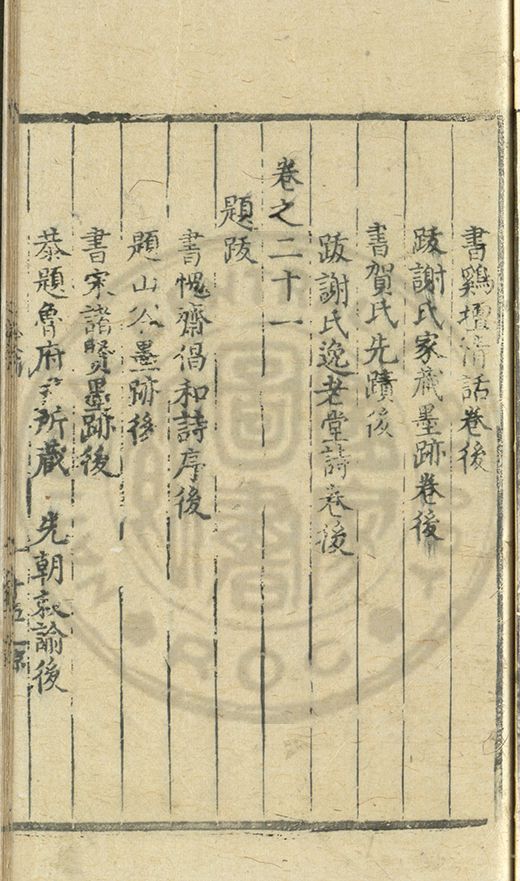 書鷄壇清話卷後
跋謝氏家藏墨跡卷後
書賀氏先蹟後
跋謝氏逸老堂詩卷後
卷之二十一
題跋
書愧齋倡和詩序後
題山谷墨跡後
書宋諸賢墨跡後
恭題魯府所藏 先朝敕諭後